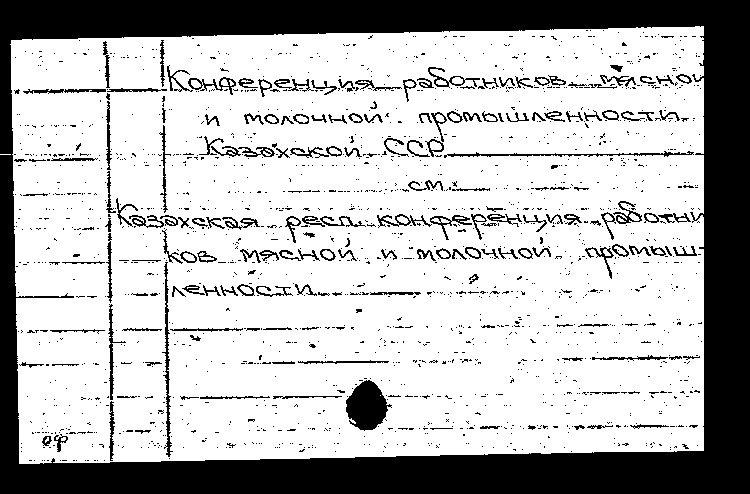 Конференция работников мясной
и молочной промышленности
Казахской ССР
см.
Казахская респ. конференция работни
ков мясной и молочной промыш-
ленности
оф